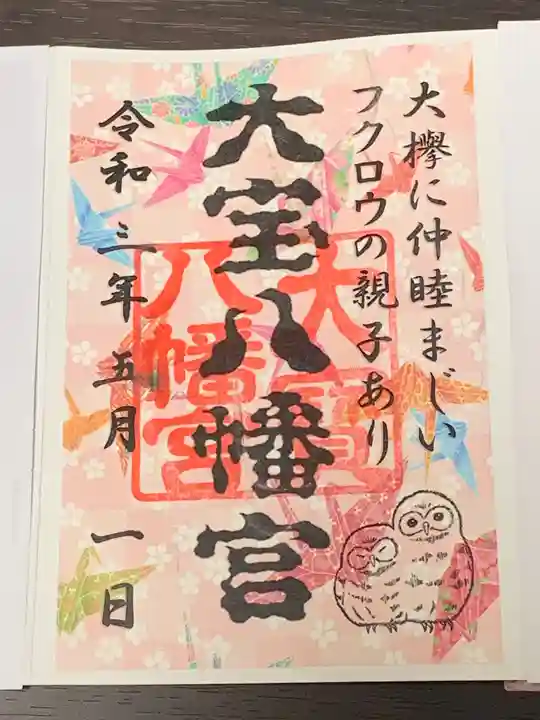 大欅に仲睦まじい
フクロウの親子あり
大宝八幡宮
大寳
八幡宮
令和三年五月一日